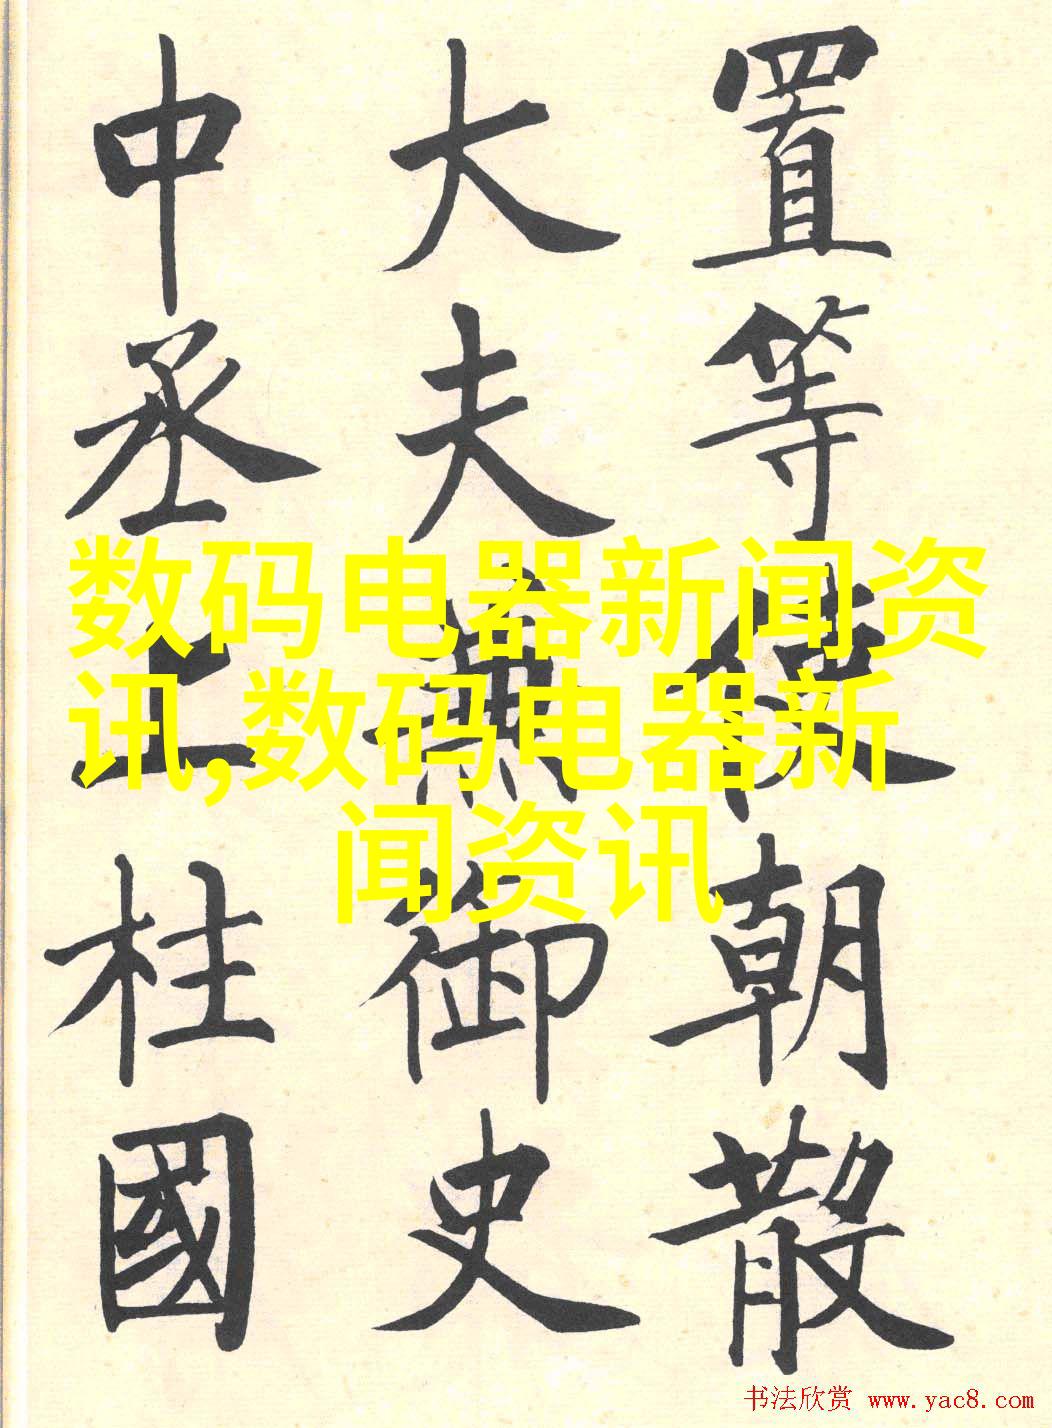 置等使朝散
大夫兼御史
中丞上柱國
数码电器新闻资
讯,数码电器新
闻资讯
书法欣赏 www.yac8.com